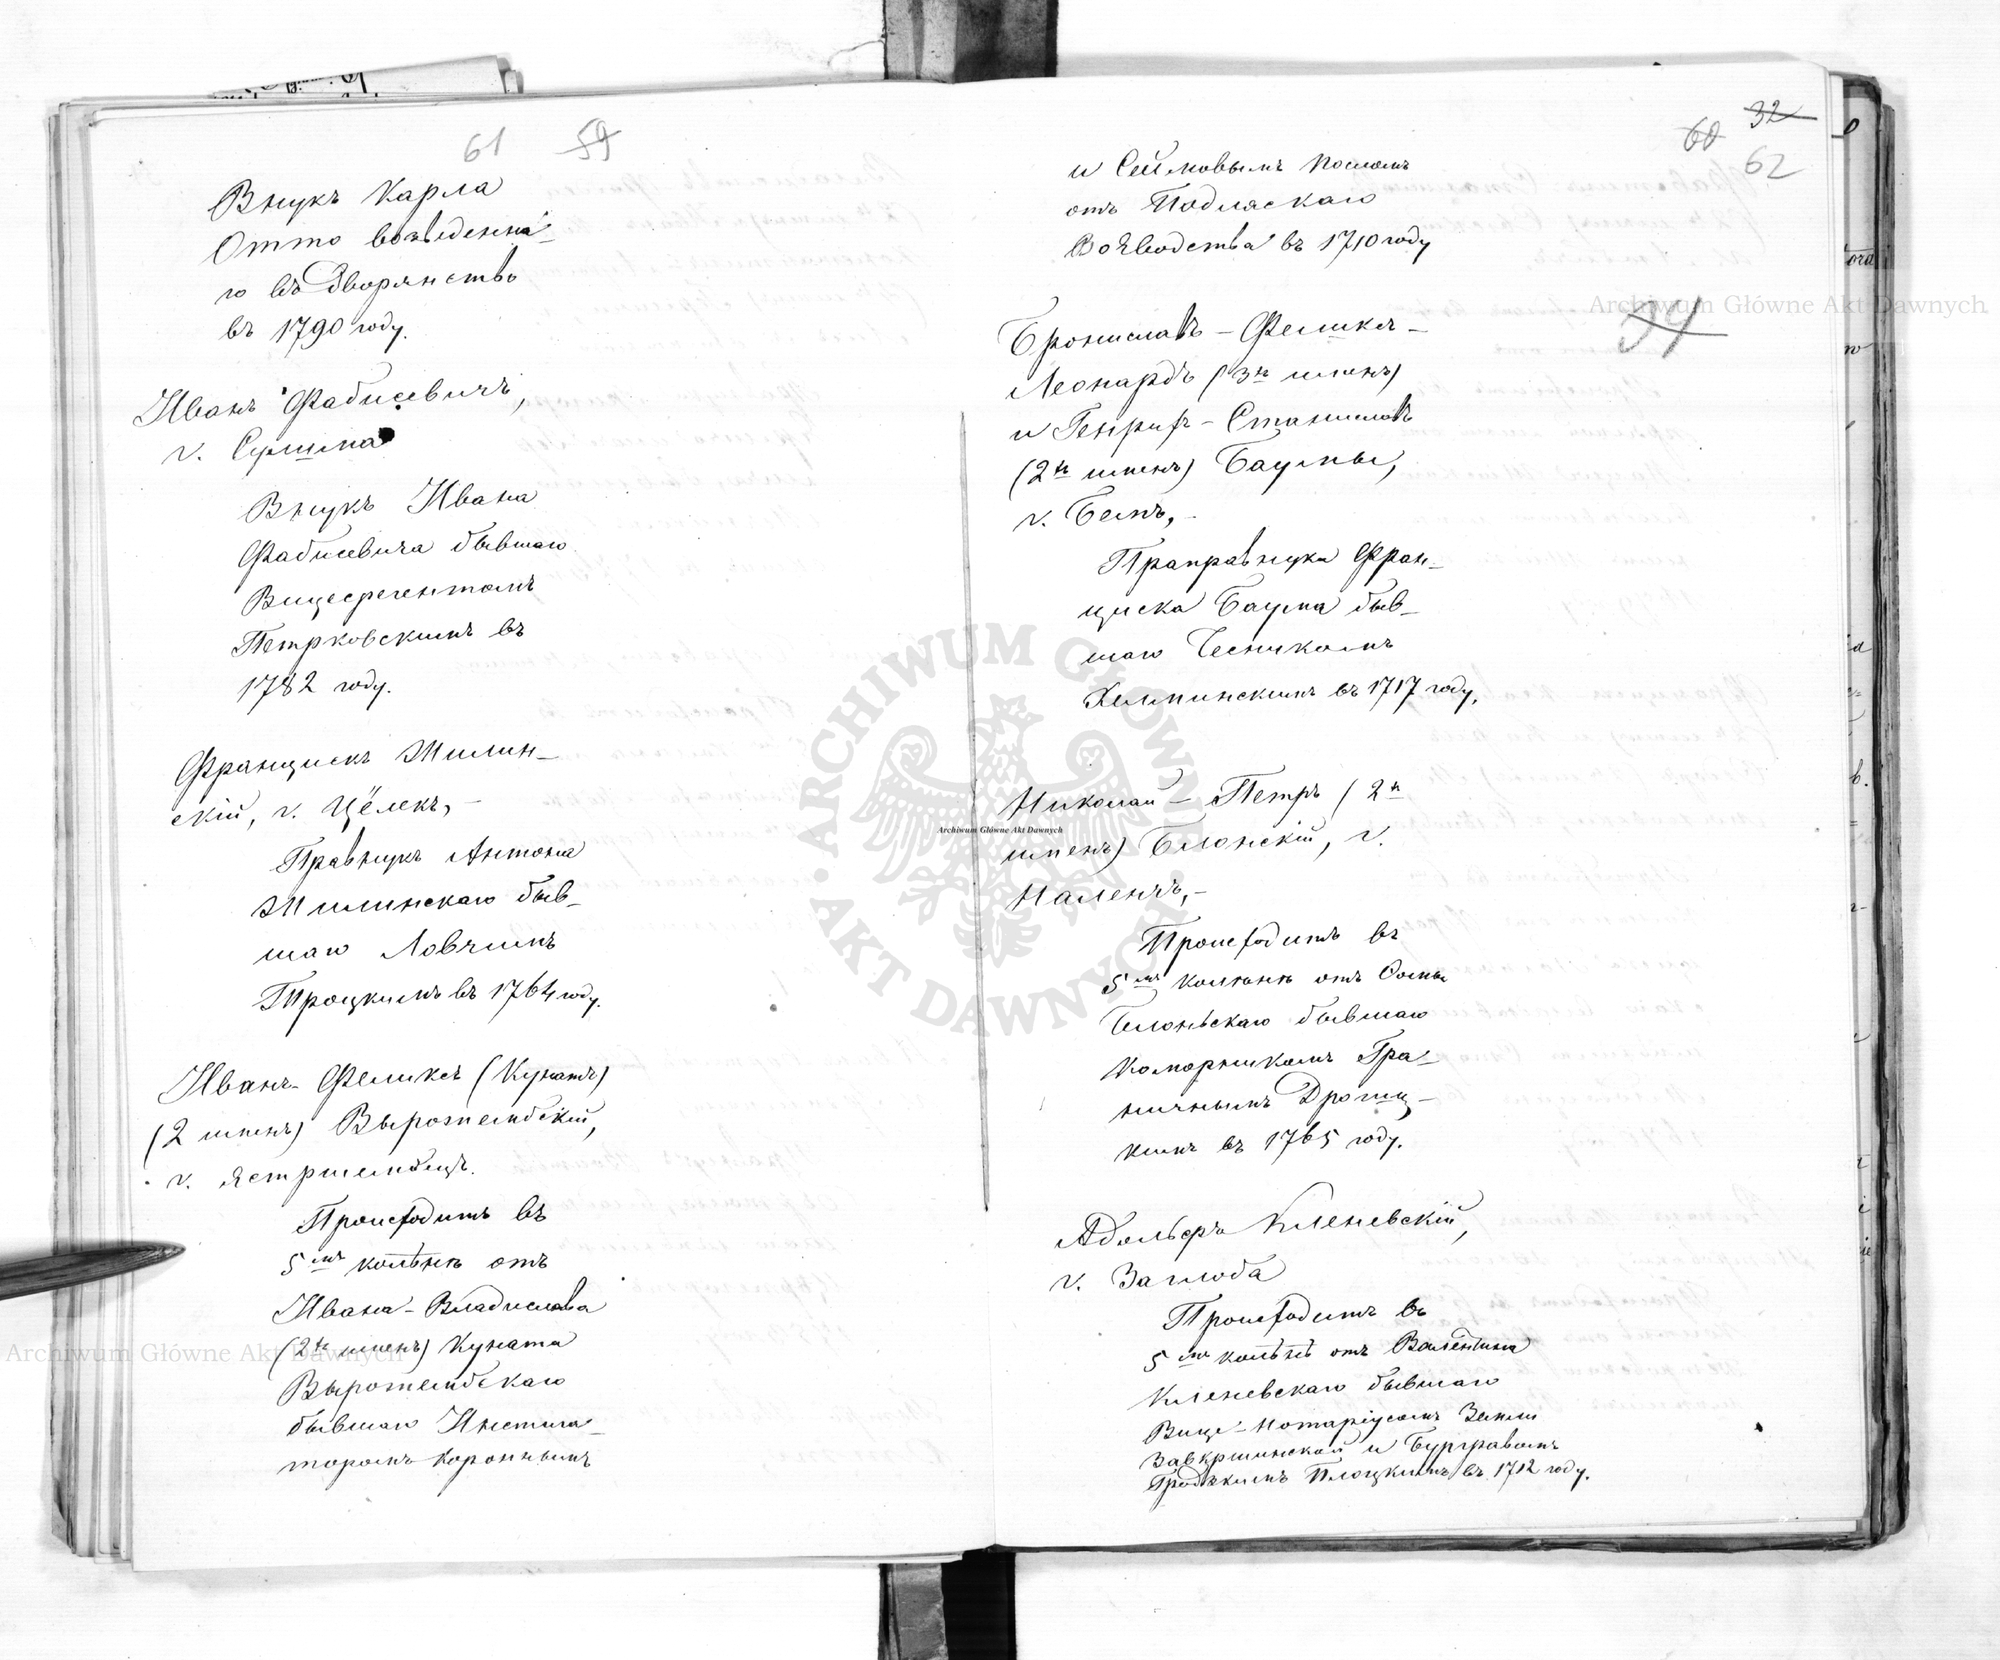 61 59
Внукъ Карла
Отто возведенна-
го въ Дворянство
въ 1790 году.
Иванъ Фабисевичъ,
г. Сулима
Внукъ Ивана
Фабисевича бывшаго
Вицесрегентомъ
Петрковскимъ въ
1782 году.
Францискъ Жилин-
скій, г. Цёлекъ,-
Правнукъ Антона
Жилинскаго быв-
шаго Ловчимъ
Троцкимъ въ 1764 году.
Иванъ-Феликсъ (Кунатъ)
(2 именъ) Вырожембскій,
г. Ястржембецъ.
Происходитъ въ
5мъ колѣнѣ отъ
Ивана-Владислава
(2хъ именъ) Куната
Вырожембскаго
бывшаго Инстига-
торомъ Короннымъ
60 32
62
и Сеймовымъ Посломъ
отъ Подляскаго
Воеводства въ 1710 году
Брониславъ-Феликсъ-
Леонардъ (3хъ именъ)
и Генрихъ-Станиславъ
(2хъ именъ) Баумы,
г. Бемъ,-
Праправнуки Фран-
циска Баума быв-
шаго Чесникомъ
Хелминскимъ въ 1717 году,
Николай-Петръ (2хъ
именъ) Блонскій, г.
Наленчъ,-
Происходитъ въ
5мъ колѣнѣ отъ
Блоньскаго бывшаго
Коморникомъ Гра-
ничнымъ Дрогиц-
кимъ въ 1765 году.
Адольфъ Кленевскій,
г. Заглоба
Происходитъ въ
5мъ колѣнѣ отъ Валентина
Кленевскаго бывшаго
Вице-Нотаріусомъ Земли
Завкржинской и Бургравомъ
Гродскимъ Плоцкимъ въ 1712 году.
Archiwum Główne Akt Dawnych
Archiwum Główne Akt Dawnych
Archiwum Główne Akt Dawnych
ARCHIWUM GŁÓWNE
AKT DAWNYCH